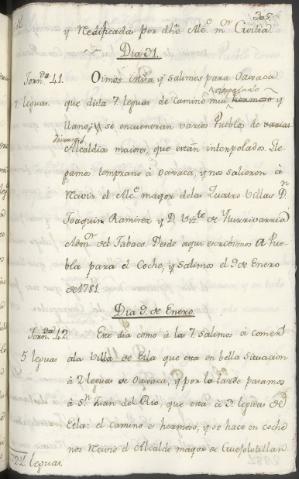 y Reedificada por dho Alce. mor Civilia
Dia 31.
Jorna. 41.
7 leguas.
Oimos misa y salimos para Oaxaca
que dista 7 leguas de camino mui hermoso y
llano, y se encuentran varios Pueblos de varias
Alcaldia maiores, que estan interpolados. Lle
gamos temprano à Oaxaca, y nos salieron à
recivir el Alce. mayor delas Quatro Villas Dn.
Joaquin Ramirez y D. Vizte. de
Admor. del Tabaco. Desde aqui escribimos à Pue
bla para el Coche, y salimos el 9 de Enero
de 1781.
Dia 9 de Enero.
Jorna. 42.
5 leguas
Este dia como à las 7 salimos à comer
ala Villa de Etla que esta en bella situacion
à 2 leguas de Oaxaca, y por la tarde paramos
à Sn. Juan del Rio, que está à 3 leguas de
Etla: el camino es hermoso, y se hace en coche
nos recivio el Alcalde mayor de
22 leguas.